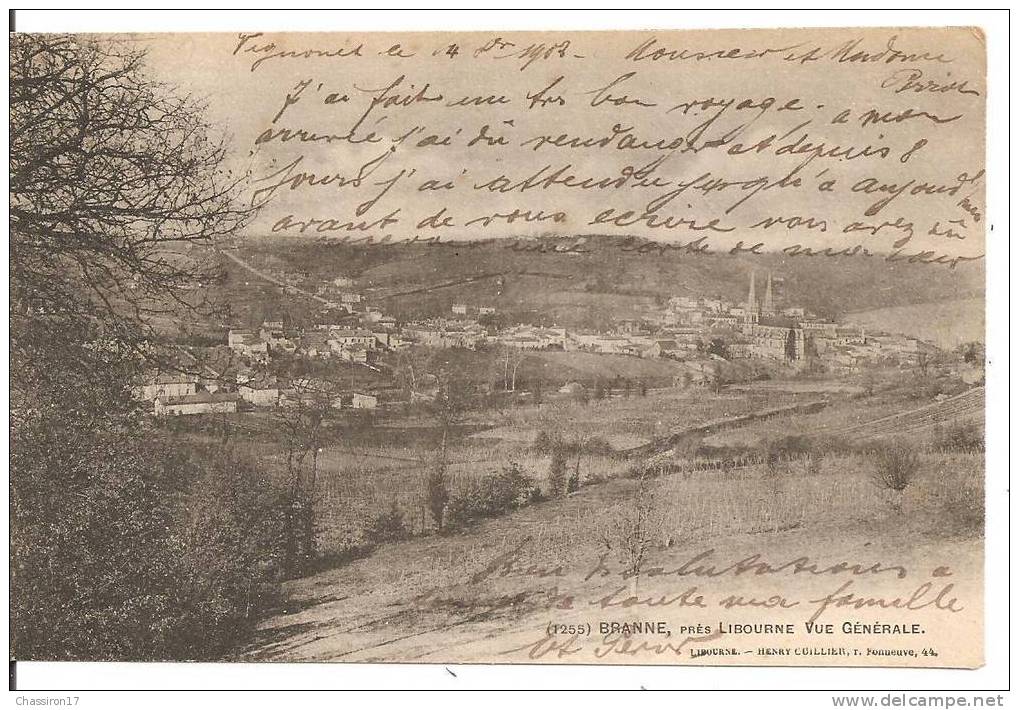 Vignonet le 4 8bre 1902 - Monsieur et Madame
J'ai fait un très bon voyage. a mon
arrivée j'ai dû vendanger et depuis 8
jours j'ai attendu jusqu'a aujourd'hui
avant de vous écrire vous avez dû
une carte de mon
salutations a
de toute ma famille
et
(1255) BRANNE, PRÈS LIBOURNE VUE GÉNÉRALE.
LIBOURNE. - HENRY GUILLIER, r. Fonneuve, 44.
Chassiron17
http://www.delcampe.net